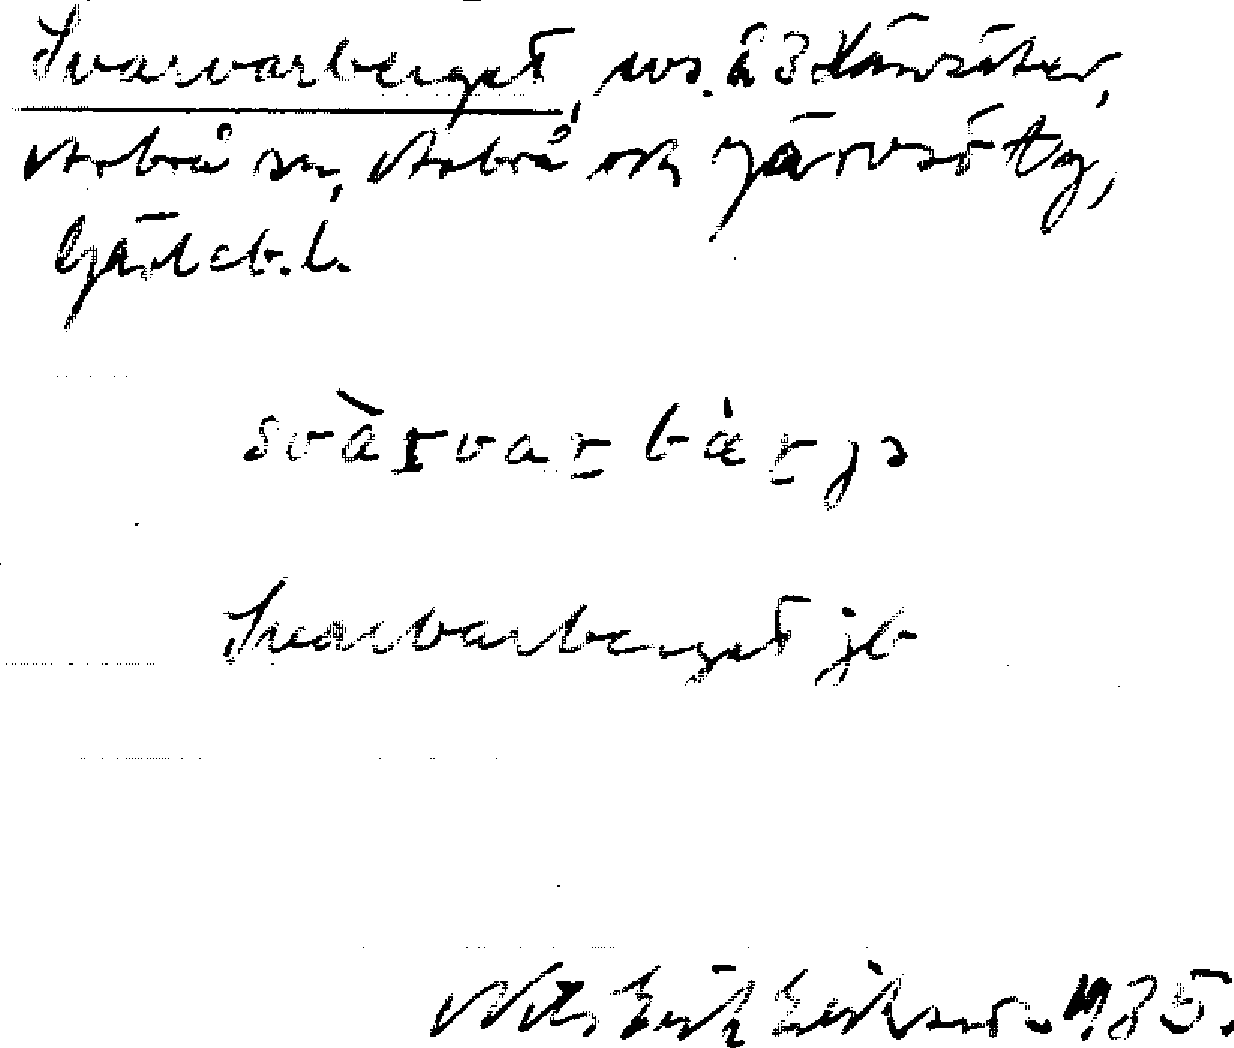 Svarvarberget, ws. å 3 Hänsäter,
Arbrå sn, Arbrå och Järvsö tg,
Gävleb. l.
svàrvarbárjə
Svarvarberget jb
Nils Erik Eriksson 1935.